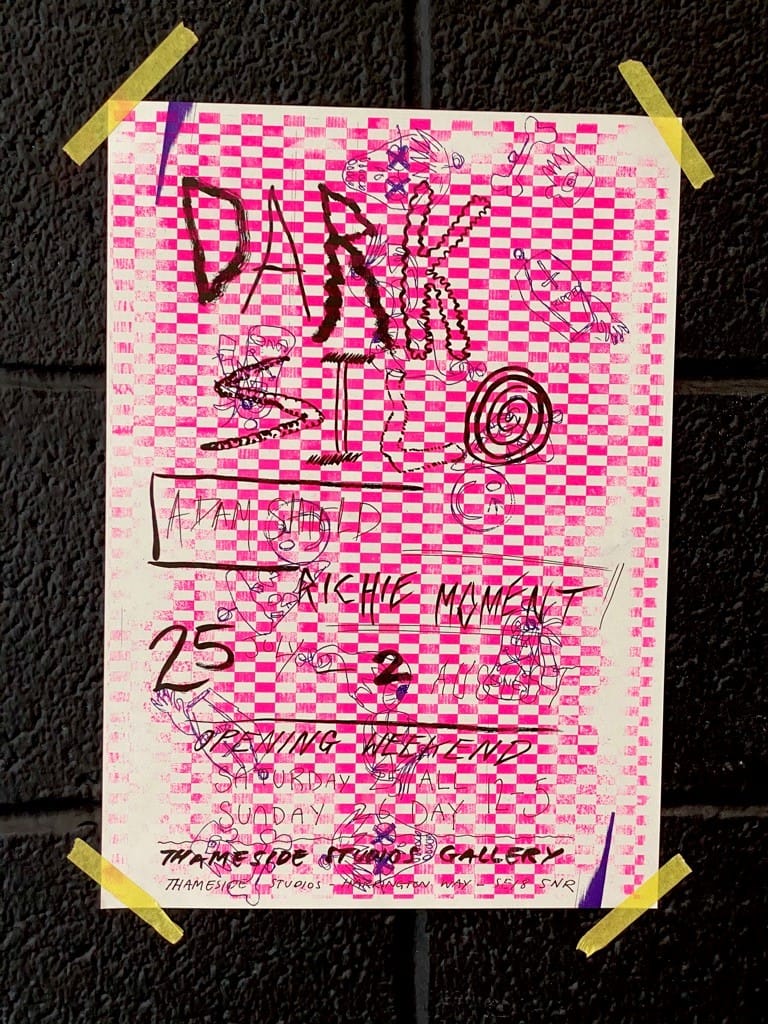 DARK
SILO
ADAM SHIELD
RICHIE MOMENT
25 JULY – 2 AUGUST
OPENING WEEKEND
SATURDAY 25 ALL
SUNDAY 26 DAY 12-5
THAMESIDE STUDIOS GALLERY
THAMESIDE STUDIOS - HARRINGTON WAY - SE18 5NR